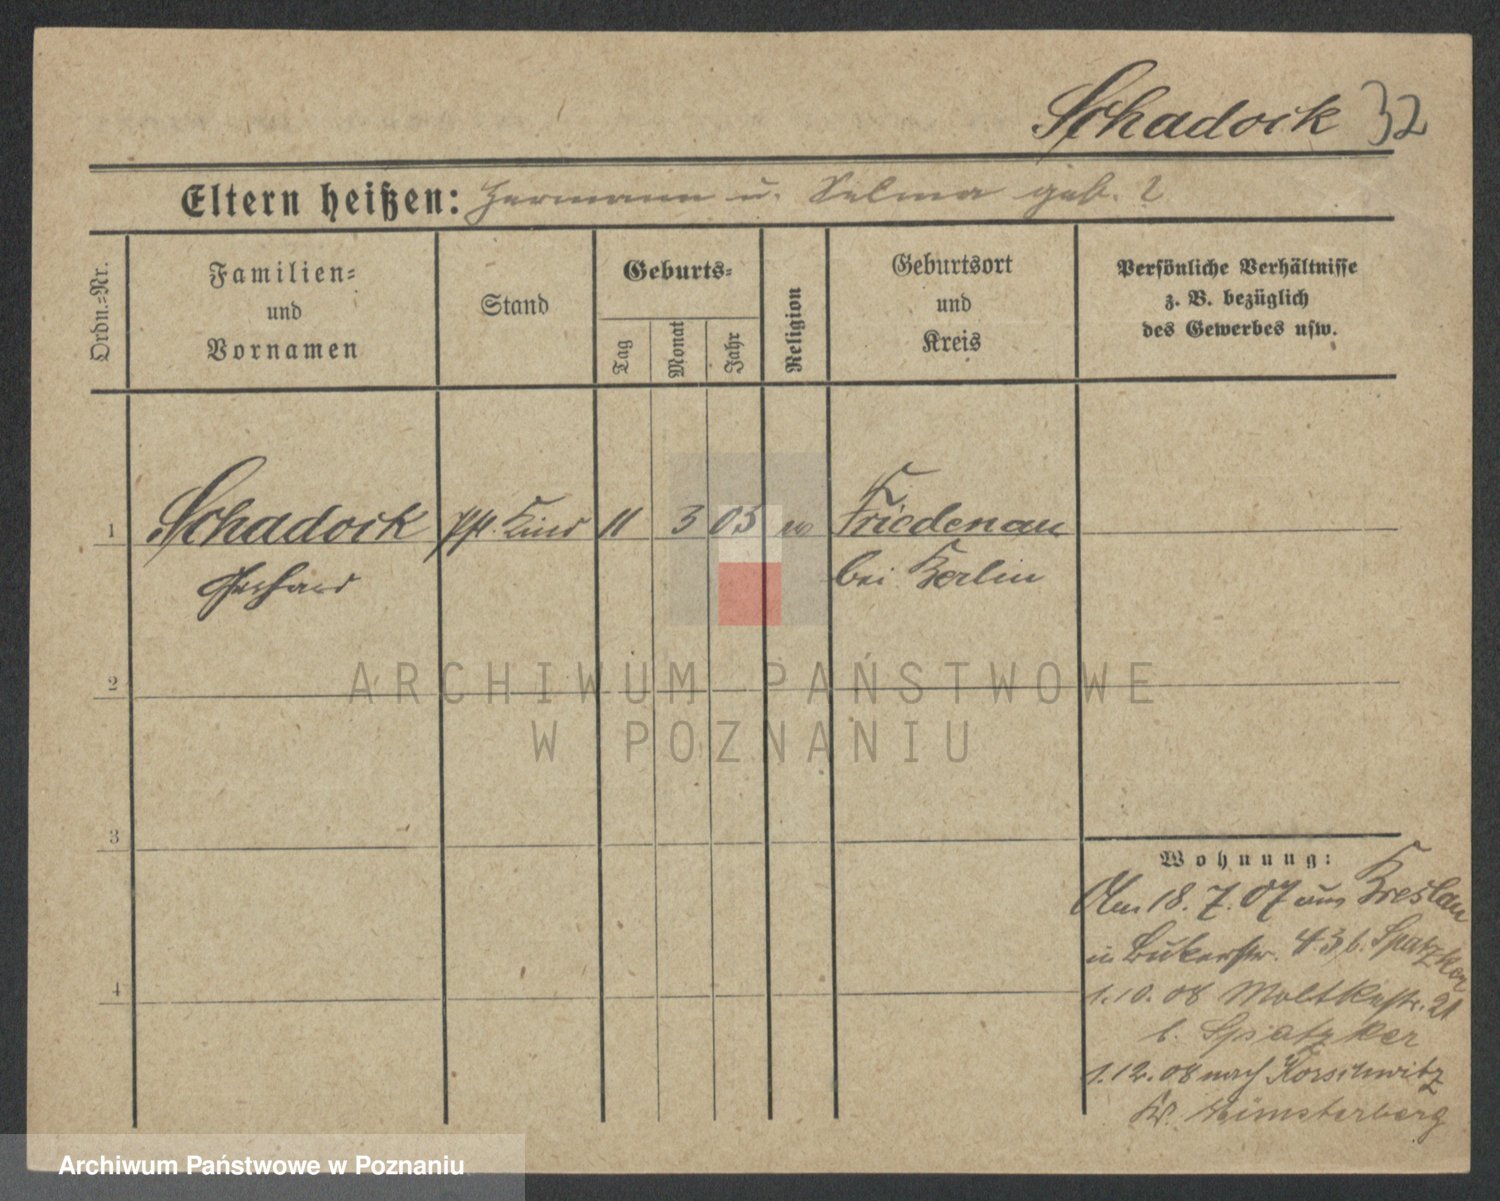 Schadock 32
Eltern heißen: Hermann u. Selma geb. ?
Ordn.-Nr.
Familien-
und
Vornamen
Stand
Geburts-
Tag
Monat
Jahr
Religion
Geburtsort
und
Kreis
Persönliche Verhältnisse
z. B. bezüglich
des Gewerbes usw.
1 Schadock Pfl. Kind 11 3 05 ev Friedenau
Gerhard bei Berlin
2
3
4
Wohnung:
Am 18. 7. 07 aus Breslau
in Bukerstr. 43 b. Spatzker
1.10.08 Moltkestr. 21
b. Spatzker
1.12.08 nach Korschwitz
Kr. Münsterberg
ARCHIWUM PAŃSTWOWE
W POZNANIU
Archiwum Państwowe w Poznaniu